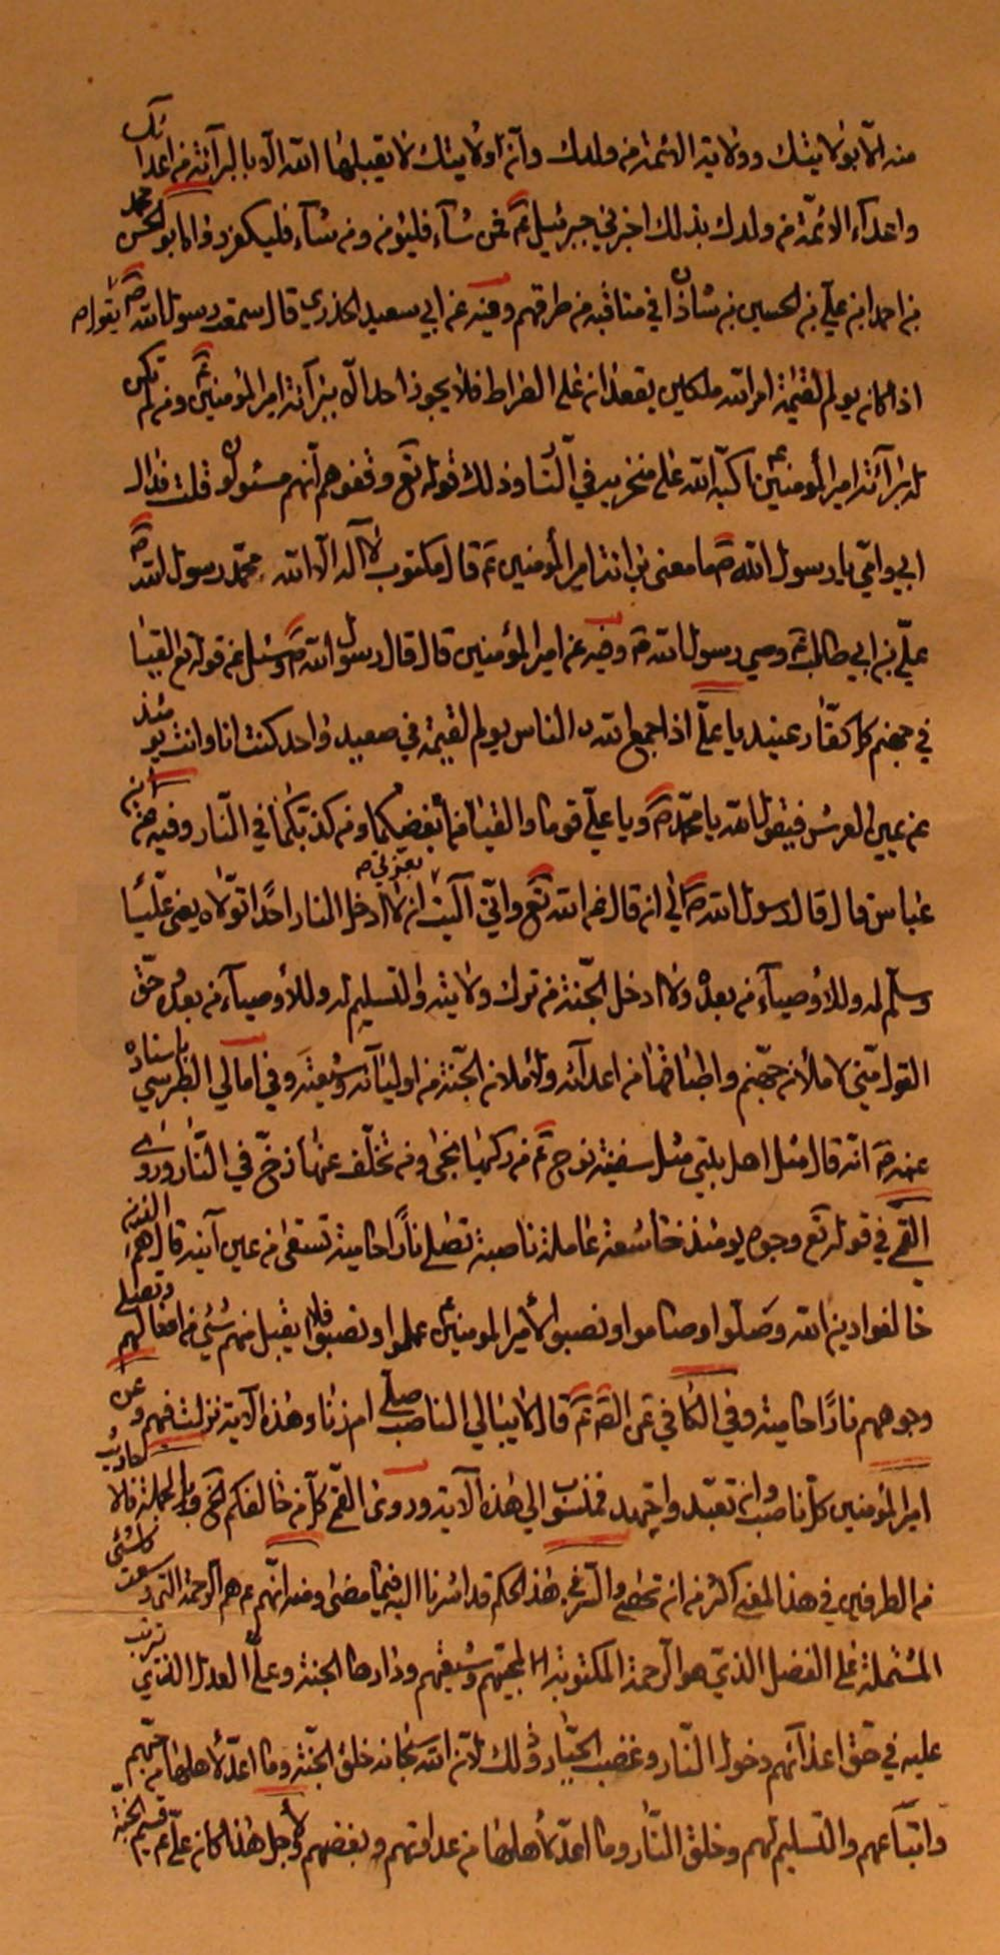 منه الّا بولايتك وولاية الائمة من ولدك وانّ ولايتك لا يقبلها الله الّا بالبرآئة من اعدائك
واعدآء الائمّة من ولدك بذلك اخبرني جبرئيل عم فمن شآء فليؤمن ومن شآء فليكفر وابو الحسن محمد
بن احمد ابن علي بن الحسين بن شاذان في مناقبه من طرقهم وفيه عن ابي سعيد الخدري قال سمعت رسول الله ص يقول
اذا كان يوم القيمة امر الله ملكين يقعدان على الصراط فلا يجوز احد الّا ببرآئة امير المؤمنين عم ومن لم تكن
له برآئة امير المؤمنين عم اكبّه الله على منخريه في النّار وذلك قوله تع وقفوهم انّهم مسئولون قلت فداك
ابي وامّي يا رسول الله ص ما معنى برائة امير المؤمنين عم قال مكتوب لا اله الّا الله محمّد رسول الله ص
عليّ بن ابي طالب عم وصي رسول الله ص وفيه عن امير المؤمنين قال قال رسول الله ص وسئل عن قوله تع القيا
في جهنم كل كفّار عنيد يا علي اذا جمع الله الناس يوم القيمة في صعيد واحد كنت انا وانت يومئذ
عن يمين العرش فيقول الله يا محمّد ص ويا عليّ قوما والقيا من ابغضكما ومن كذبكما في النّار وفيه عن ابن
عباس قال قال رسول الله ص اني انه قال عن الله تع وانّي آليت بعزتي ان لا ادخل النار احدًا تولّاه يعني عليًّا
وسلّم له وللأوصياء من بعده ولا ادخل الجنّة من ترك ولايته والتسليم له وللأوصيآء من بعده حقّ
القول منّي لأملأن جهنم واطباقها من اعدآئه ولأملأن الجنّة من اوليائه وشيعته وفي امالي الطبرسي باسناده
عنه ص انّه قال مثل اهل بيتي مثل سفينة نوح عم من ركبها نجى ومن تخلّف عنها زخّ في النّار وروى
القمي في قوله تع وجوه يومئذ خاشعة عاملة ناصبة تصلى نارًا حامية تسقى من عين آنية قال هم الذين
خالفوا دين الله وصلّوا وصاموا ونصبوا لأمير المؤمنين عم عملوا ونصبوا فلا يقبل منهم شئ من افعالهم وتصلى
وجوههم نارًا حامية وفي الكافي عن الصم عم قال لا يبالي الناصب صلّى ام زنا وهذه الآية نزلت فيهم وعن
امير المؤمنين كل ناصب وان تعبّد واجتهد فمنسوب الى هذه الآية وروى القمي كل من خالفكم الخ وبالجملة فالاحاديث
من الطرفين في هذا المعنى اكثر من ان تحصى والسّر في هذا الحكم قد اشرنا اليه فيما مضى ومنه انّهم عم هم الرحمة التي وسعت كل شئ
المشتملة على الفضل الذي هو الرحمة المكتوبة لمحبيهم وشيعتهم ودارها الجنة وعلى العدل الذي ترتب
عليه في حقّ اعدآئهم دخول النّار وغضب الجبّار وذلك لأنّ الله سبحانه خلق الجنّة وما اعدّ لأهلها من حبّهم
واتباعهم والتسليم لهم وخلق النّار وما اعدّ لأهلها من عداوتهم وبغضهم ولأجل هذا كان عليّ عم قسيم الجنّة